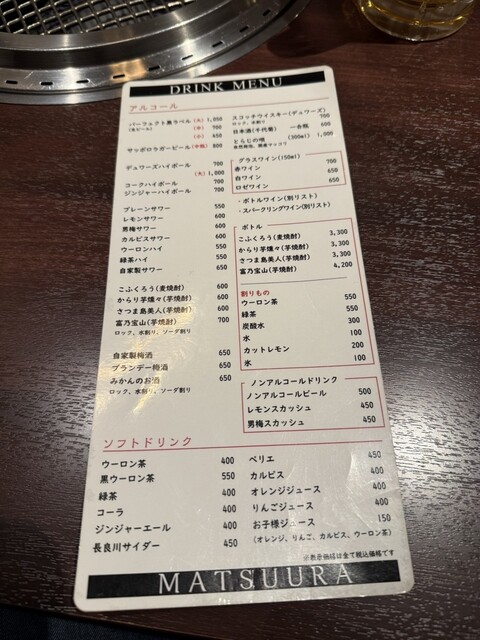 DRINK MENU
アルコール
パーフェクト黒ラベル (大) 1,050
(生ビール) (中) 700
(小) 450
サッポロラガービール (中瓶) 800
デュワーズハイボール 700
(大) 1,000
コークハイボール 700
ジンジャーハイボール 700
プレーンサワー 550
レモンサワー 600
男梅サワー 600
カルピスサワー 600
ウーロンハイ 550
緑茶ハイ 550
自家製サワー 650
こふくろう(麦焼酎) 600
からり芋燻々(芋焼酎) 600
さつま島美人(芋焼酎) 600
富乃宝山(芋焼酎) 700
ロック、水割り、ソーダ割り
自家製梅酒 650
ブランデー梅酒 650
みかんのお酒 650
ロック、水割り、ソーダ割り
スコッチウイスキー(デュワーズ)
ロック、水割り 700
日本酒(千代菊) 一合瓶 600
とらじの唄 (300ml) 1,000
グラスワイン(150ml)
赤ワイン 700
白ワイン 650
ロゼワイン 650
・ボトルワイン(別リスト)
・スパークリングワイン(別リスト)
ボトル
こふくろう(麦焼酎) 3,300
からり芋燻々(芋焼酎) 3,300
さつま島美人(芋焼酎) 3,300
富乃宝山(芋焼酎) 4,200
割りもの
ウーロン茶 550
緑茶 550
炭酸水 300
水 100
カットレモン 200
氷 100
ノンアルコールドリンク
ノンアルコールビール 500
レモンスカッシュ 450
男梅スカッシュ 450
ソフトドリンク
ウーロン茶 400
黒ウーロン茶 550
緑茶 400
コーラ 400
ジンジャーエール 400
長良川サイダー 450
ペリエ 450
カルピス 400
オレンジジュース 400
りんごジュース 400
お子様ジュース 150
(オレンジ、りんご、カルピス、ウーロン茶)
※表示価格は全て税込価格です
MATSUURA